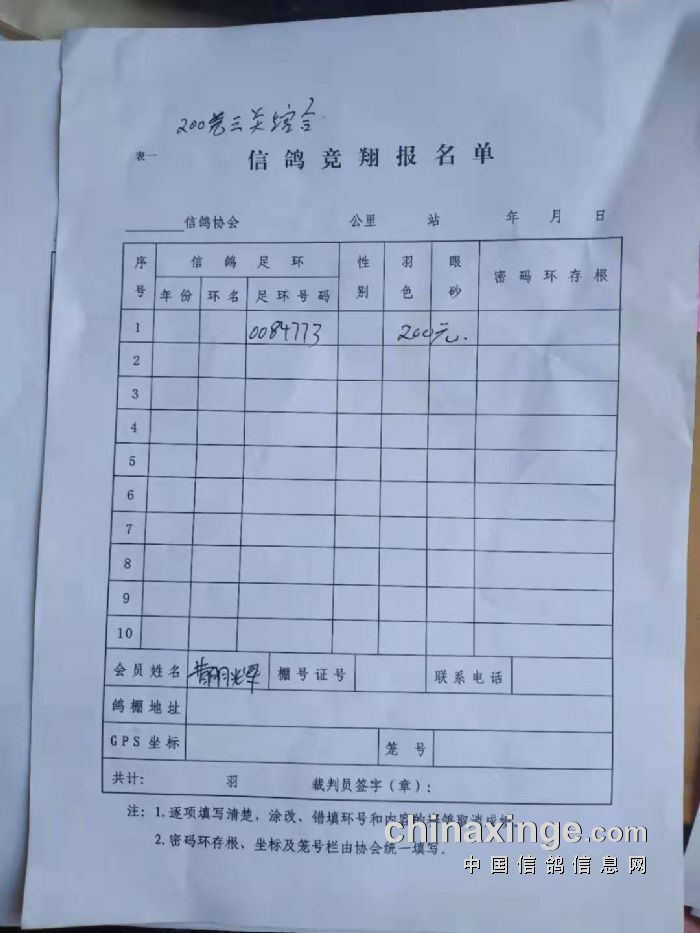 200元三关综合
表一
信鸽竞翔报名单
信鸽协会 公里 站 年 月 日
序号 信鸽足环 性别 羽色 眼砂 密码环存根
年份 环名 足环号码
1 0084773 200元.
2
3
4
5
6
7
8
9
10
会员姓名 棚号证号 联系电话
鸽棚地址
GPS坐标 笼号
共计: 羽 裁判员签字(章):
注: 1.逐项填写清楚，涂改、错填环号和内容的
2.密码环存根、坐标及笼号栏由协会统一填写.
chinaxinge.com
中国信鸽信息网